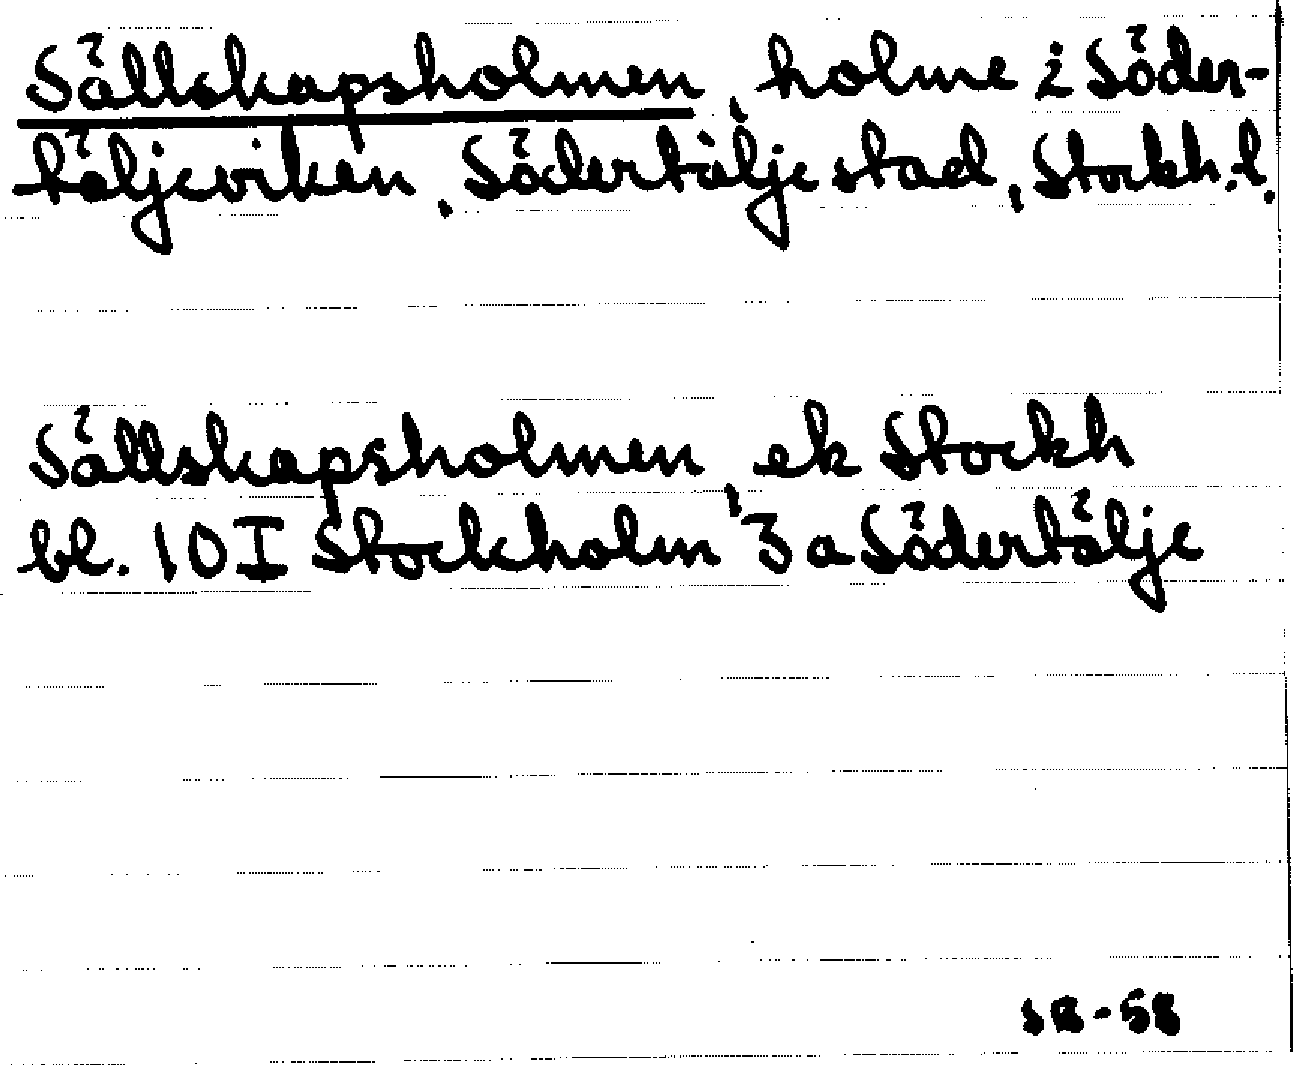 Sällskapsholmen, holme i Söder-
täljeviken, Södertälje stad, Stockh. l.
Sällskapsholmen, ek Stockh
bl. 10 I Stockholm 3 a Södertälje